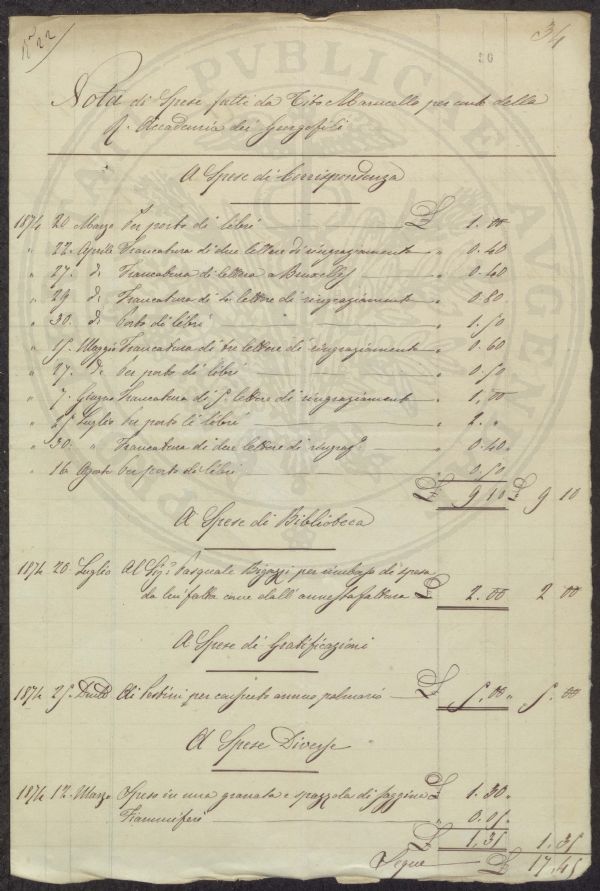 N° 22
3/4
Nota di Spese fatte da Tito Marucelli per conto della
R. Accademia dei Georgofili
A Spese di Corrispondenza
1874 20 Marzo Per porto di libri £ 1. 00
" 22. Aprile Francatura di due lettere di ringraziamento " 0. 40
" 27. d° Francatura di lettera a Bruxelles " 0. 40
" 29. d° Francatura di 4 lettere di ringraziamento " 0. 80
" 30. d° Porto di libri " 1. 50
" 15. Maggio Francatura di tre lettere di ringraziamento " 0. 60
" 27. d° Per porto di libri " 0. 50
" 7. Giugno Francatura di 5. lettere di ringraziamento " 1. 00
" 25 Luglio Per porto di libri " 2. "
" 30. " Francatura di due lettere di ringraz° " 0. 40
" 16 Agosto Per porto di libri " 0. 50
£ 9 10 £ 9 10
A Spese di Biblioteca
1874 20 Luglio Al Sig.r Pasquale Bigazzi per rimborso di spesa
da lui fatta come dall'annessa fattura £ 2. 00 2 00
A Spese di Gratificazioni
1874 25. Ai Postini per consueto annuo £ 5. 00 " 5. 00
A Spese Diverse
1874 12. Marzo Spese in una granata e spazzola di saggina £ 1. 30 "
Fiammiferi " 0. 05 "
£ 1. 35 1. 35
Segue £ 17. 45
PVBLICAE